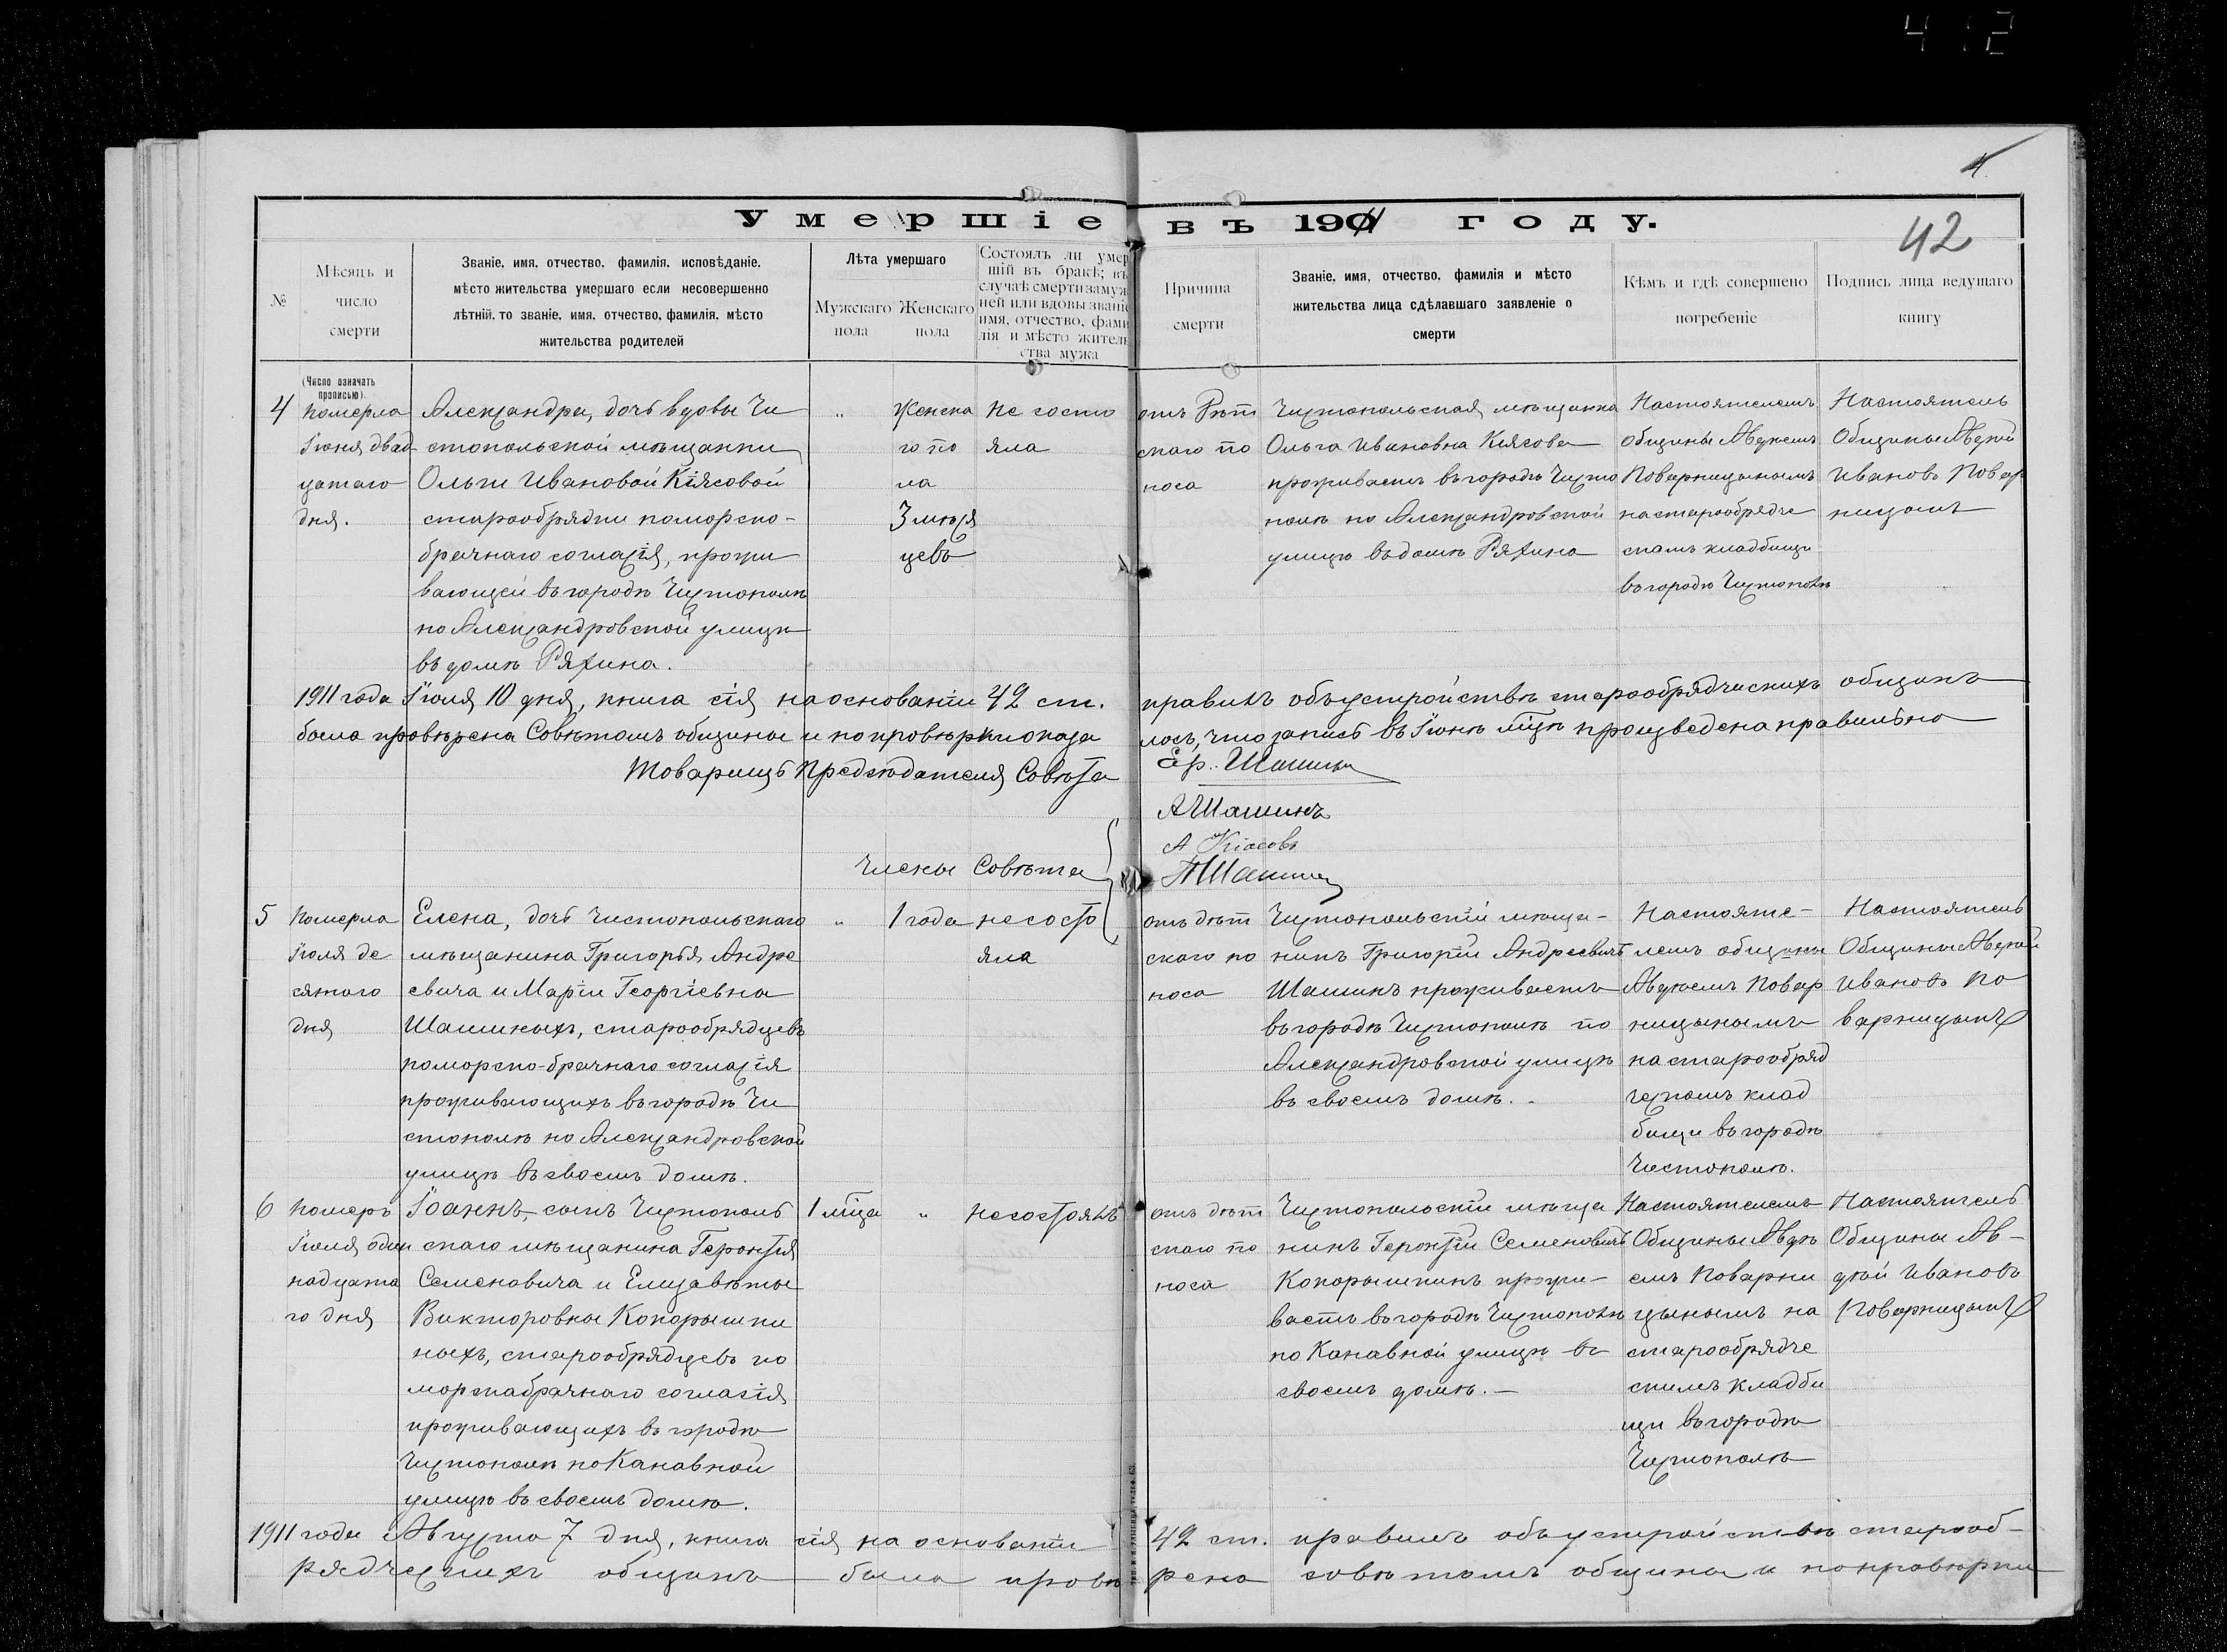 412
4
Умершіе въ 1911 году.
42
№
Мѣсяцъ и
число
смерти
Званіе, имя, отчество, фамилія, исповѣданіе,
мѣсто жительства умершаго если несовершенно
лѣтній, то званіе, имя, отчество, фамилія, мѣсто
жительства родителей
Лѣта умершаго
Мужскаго
пола
Женскаго
пола
Состоялъ ли умер
шій въ бракѣ; въ
случаѣ смерти замуж
ней или вдовы званіе
имя, отчество, фами
лія и мѣсто житель
ства мужа
Причина
смерти
Званіе, имя, отчество, фамилія и мѣсто
жительства лица сдѣлавшаго заявленіе о
смерти
Кѣмъ и гдѣ совершено
погребеніе
Подпись лица ведущаго
книгу
(Число означать
прописью).
4
померла
Іюня двад
цатаго
дня.
Александра, дочь вдовы Чи
стопольской мѣщанки
Ольги Ивановой Кіясовой
старообрядки поморско-
брачнаго согласія, прожи
вающей въ городѣ Чистополѣ
по Александровской улицѣ
въ домѣ Ряхина.
"
женска
го по
ла
3 мѣся
цевъ
не состо
яла
отъ дѣт
скаго по
носа
Чистопольская мѣщанка
Ольга Ивановна Кіясова
проживаетъ въ городѣ Чисто
полѣ по Александровской
улицѣ въ домѣ Ряхина
Настоятелемъ
общины Авдѣемъ
Поварницынымъ
на старообрядче
скомъ кладбищи
въ городѣ Чистополѣ
Настоятель
Общины Авдѣй
Ивановъ Повар
ницынъ
1911 года Іюля 10 дня, книга сія на основаніи 42 ст. правилъ объ устройствѣ старообрядческихъ общинъ
была провѣрена Совѣтомъ общины и по провѣрки оказа лось, что запись въ Іюнѣ мѣсц произведена правильно
Товарищъ Предсѣдателя Совѣта
Ер. Шашинъ
А Шашинъ
А Кіасовъ
Члены Совѣта
П Шашинъ
5
померла
Іюля де
сятаго
дня
Елена, дочь Чистопольскаго
мѣщанина Григорья Андре
евича и Маріи Георгіевна
Шашиныхъ, старообрядцевъ
поморско-брачнаго согласія
проживающихъ въ городѣ Чи
стополѣ по Александровской
улицѣ въ своемъ домѣ.
"
1 года
не состо
яла
отъ дѣт
скаго по
носа
Чистопольскій мѣща-
нинъ Григорій Андреевичъ
Шашинъ проживаетъ
въ городѣ Чистополѣ по
Александровской улицѣ
въ своемъ домѣ.
Настояте-
лемъ общины
Авдѣемъ Повар
ницынымъ
на старообряд
ческомъ клад
бищи въ городѣ
Чистополѣ.
Настоятель
Общины Авдѣй
Ивановъ По
варницынъ
6
померъ
Іюля один
надцата
го дня
Іоаннъ, сынъ Чистополь
скаго мѣщанина Геронтія
Семеновича и Елизавѣты
Викторовны Кокорышки
ныхъ, старообрядцевъ по
морскабрачнаго согласія
проживающихъ въ городѣ
Чистополѣ по Канавной
улицѣ въ своемъ домѣ.
1 мѣца
"
не состоялъ
отъ дѣт
скаго по
носа
Чистополоскій мѣща
нинъ Геронтій Семеновичъ
Кокорышкинъ прожи-
ваетъ въ городѣ Чистополѣ
по Канавной улицѣ въ
своемъ домѣ.
Настоятелемъ
Общины Авдѣ
емъ Поварни
цынымъ на
старообрядче
скимъ кладби
щи въ городѣ
Чистополѣ
Настоятель
Общины Ав-
дѣй Ивановъ
Поварницынъ
1911 года Августа 7 дня, книга сія на основаніи 42 ст. правилъ объ устройствѣ старооб-
рядческихъ общинъ была провѣ рена совѣтомъ общины и по провѣрки